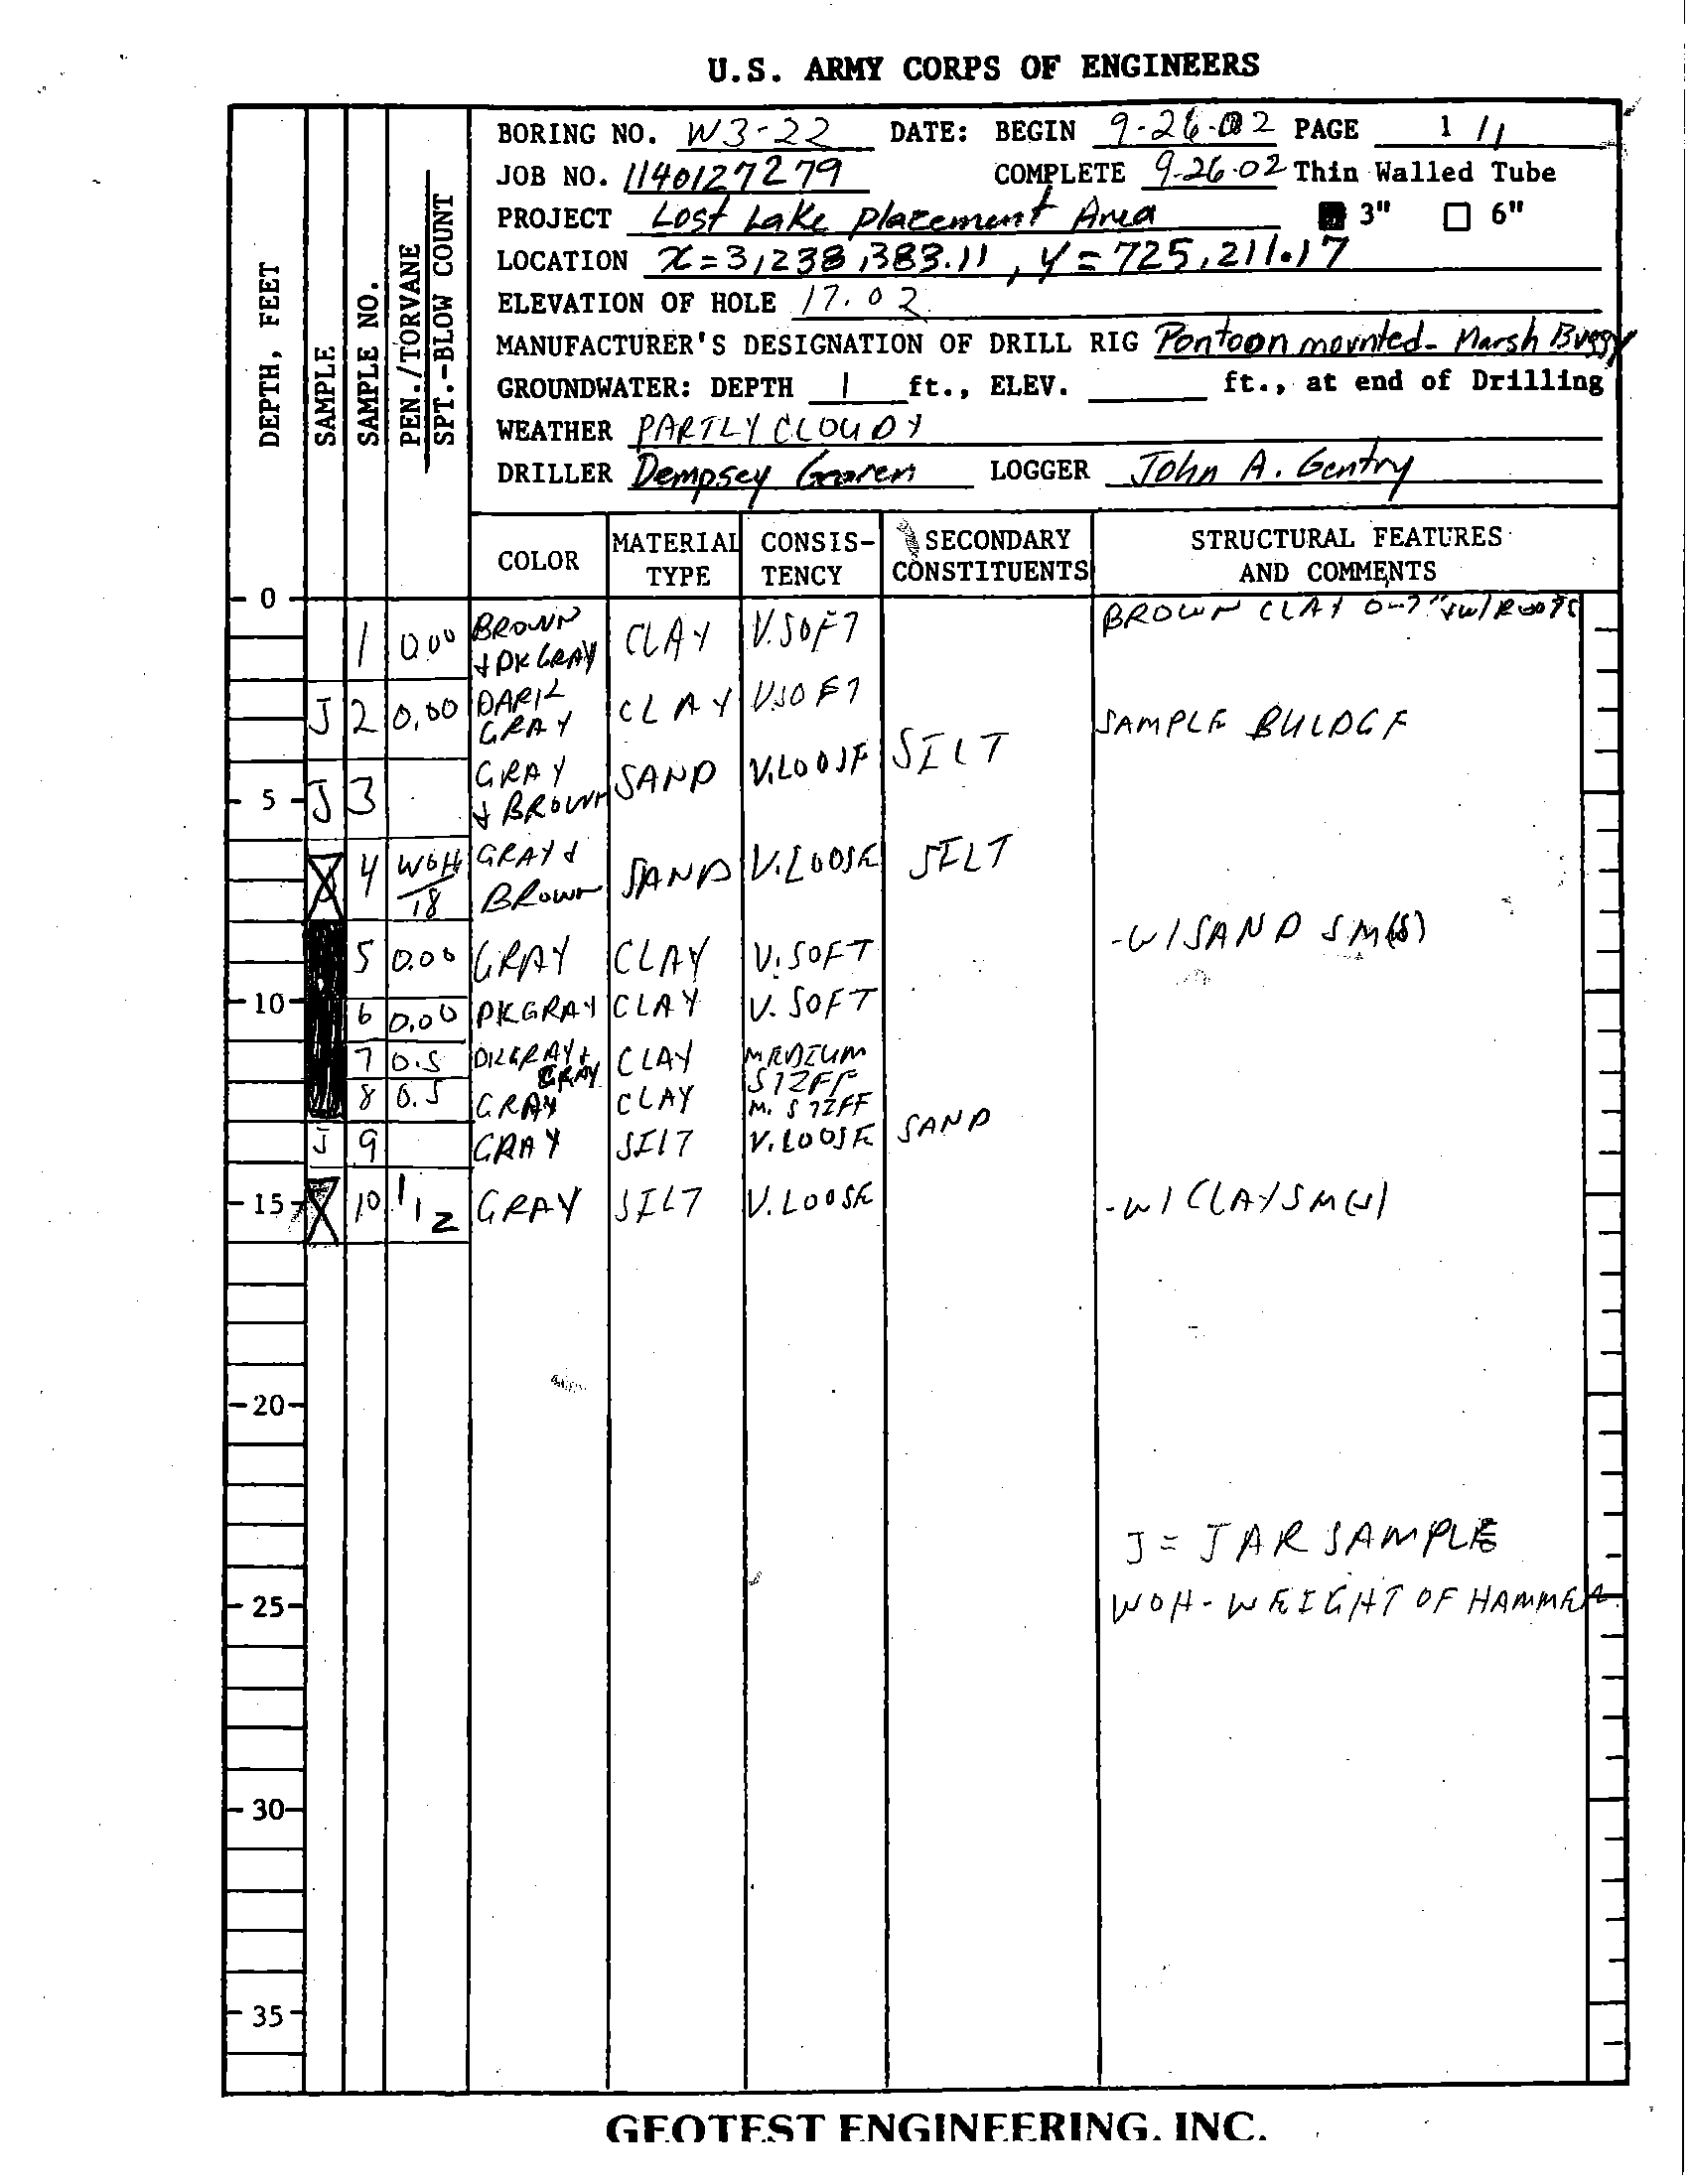 U.S. ARMY CORPS OF ENGINEERS
BORING NO. W3-22 DATE: BEGIN 9-26-02 PAGE 1/1
JOB NO. 1140127279 COMPLETE 9-26-02 Thin Walled Tube
PROJECT Lost Lake Placement Area 3" 6"
LOCATION X=3,238,383.11, Y=725,211.17
ELEVATION OF HOLE 17.02
MANUFACTURER'S DESIGNATION OF DRILL RIG Pontoon mounted- Marsh Buggy
GROUNDWATER: DEPTH 1 ft., ELEV. ft., at end of Drilling
WEATHER PARTLY CLOUDY
DRILLER Dempsey LOGGER John A. Gentry
DEPTH, FEET
SAMPLE
SAMPLE NO.
PEN./TORVANE
SPT.-BLOW COUNT
COLOR MATERIAL TYPE CONSIS-TENCY SECONDARY CONSTITUENTS STRUCTURAL FEATURES AND COMMENTS
0
1 0.00 BROWN & DK GRAY CLAY V.SOFT BROWN CLAY 0-7" W/ROOTS
J 2 0.00 DARK GRAY CLAY V.SOFT SAMPLE BULDGE
5 J 3 GRAY & BROWN SAND V.LOOSE SILT
4 WOH/18 GRAY & BROWN SAND V.LOOSE SILT
5 0.00 GRAY CLAY V.SOFT -W/SAND SM(S)
10 6 0.00 DKGRAY CLAY V. SOFT
7 0.5 DKGRAY & GRAY CLAY MEDIUM STIFF
8 0.5 GRAY CLAY M. STIFF
J 9 GRAY SILT V.LOOSE SAND
15 10 1/1 2 GRAY SILT V.LOOSE -W/CLAY SM(S)
20
J = JAR SAMPLE
25 WOH - WEIGHT OF HAMMER
30
35
GEOTEST ENGINEERING, INC.